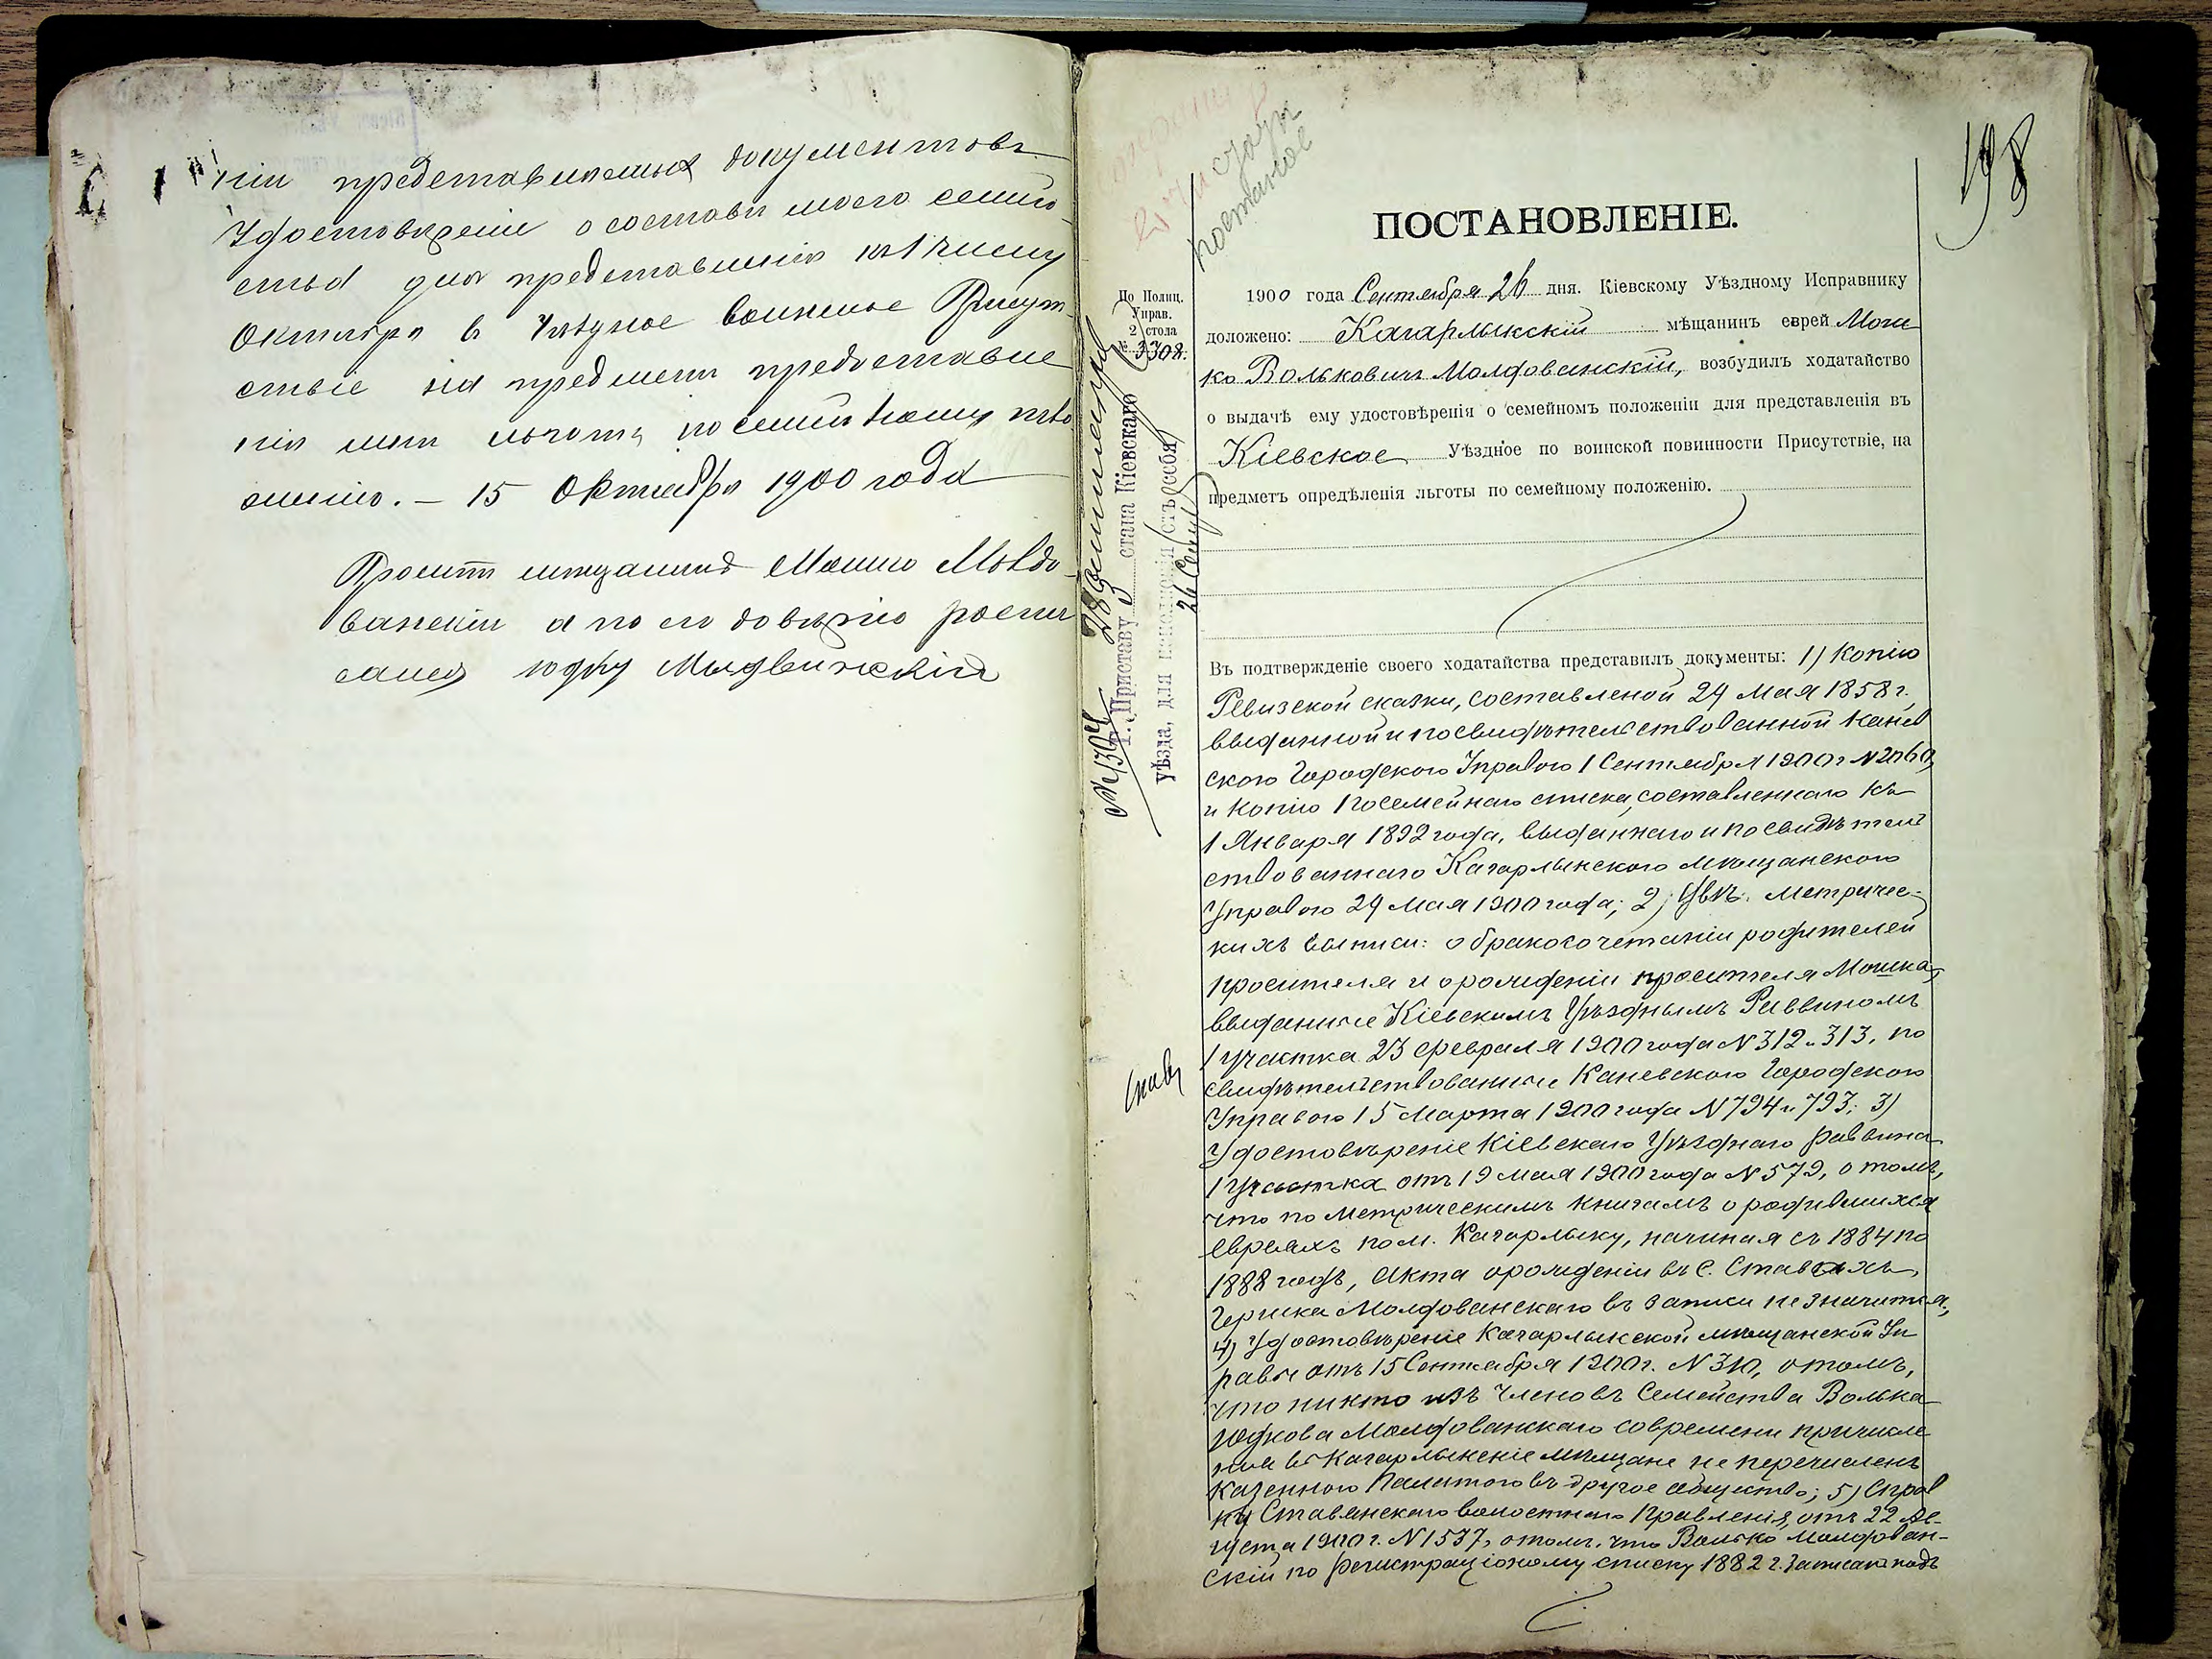 ніи представленныхъ документовъ
Удостовѣреніе о составѣ моего семей-
ства для представленія къ 1 числу
Октября в Уѣздное воинское Присут-
ствіе на предметъ предоставле
нія мнѣ льготы по семейному поло
женію. – 15 Октября 1900 года
Проситъ мѣщанинъ Мошко Молдо-
ванскій а по его довѣрію роспи
сался Юдко Медвинскій
198
чистая
постанов
ПОСТАНОВЛЕНІЕ.
По Полиц.
Управ.
2 стола
№ 3308.
1900 года Сентября 26 дня. Кіевскому Уѣздному Исправнику
доложено: Кагарлыкскій мѣщанинъ еврей Мош
ко Вольковичъ Молдованскій, возбудилъ ходатайство
о выдачѣ ему удостовѣренія о семейномъ положеніи для представленія въ
Кіевское Уѣздное по воинской повинности Присутствіе, на
предметъ опредѣленія льготы по семейному положенію.
Г. Приставу 3 стана Кіевскаго
уѣзда, для исполненія
26 Сент
№ 1304
Въ подтвержденіе своего ходатайства представилъ документы: 1) Копію
Ревизской сказки, составленой 24 Мая 1858 г.
выданной и посвидѣтельствованной Канев
ского Городского Управою 1 Сентября 1900 г N 2060,
и копію посемейнаго списка, составленнаго къ
1 Января 1892 года, выданнаго и посвидѣтель
ствованнаго Кагарлыкского мѣщанского
Управою 24 Мая 1900 года; 2) Двѣ метричес-
кихъ выписи: о бракосочетаніи родителей
просителя и о рожденіи просителя Мошка,
выданные Кіевскимъ Уѣзднымъ Раввиномъ
1 участка 23 февраля 1900 года N 312 и 313, по
свидѣтельствованные Каневского Городского
Управою 15 Марта 1900 года N 794 и 793; 3)
Удостовѣреніе Кіевскаго Уѣзднаго раввина
1 Участка отъ 19 Мая 1900 года N 579, о томъ,
что по метрическимъ книгамъ о родившихся
евреяхъ по м. Кагарлыку, начиная съ 1884 по
1888 годъ, акта о рожденіи въ с. Ставахъ,
Гершка Молдованскаго въ записи не значится,
4) Удостовѣреніе Кагарлыкской мѣщанской Уп
равы отъ 15 Сентября 1900 г. N 310, о томъ,
что никто изъ членовъ Семейства Волька
Юдкова Молдованскаго со времени причисле
нія въ Кагарлыкскіе мѣщане не перечисленъ
Казенного Палатого въ другое общество; 5) Справ
ку Ставянскаго волостнаго Правленія, отъ 22 Ав-
густа 1900 г. N 1537, о томъ, что Волько Молдован-
скій по регистраціоному списку 1882 г. записанъ подъ